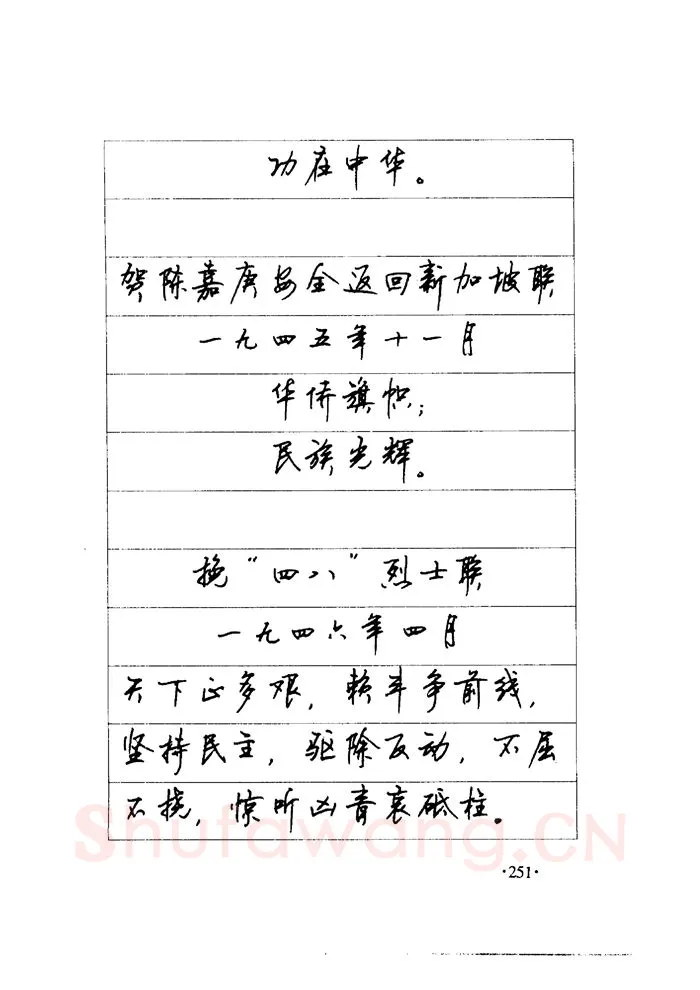 功在中华。
贺陈嘉庚安全返回新加坡联
一九四五年十一月
华侨旗帜；
民族光辉。
挽“四八”烈士联
一九四六年四月
天下正多艰，赖斗争前线，
坚持民主，驱除反动，不屈
不挠，惊听凶音哀砥柱。
Shufawang.CN
·251·